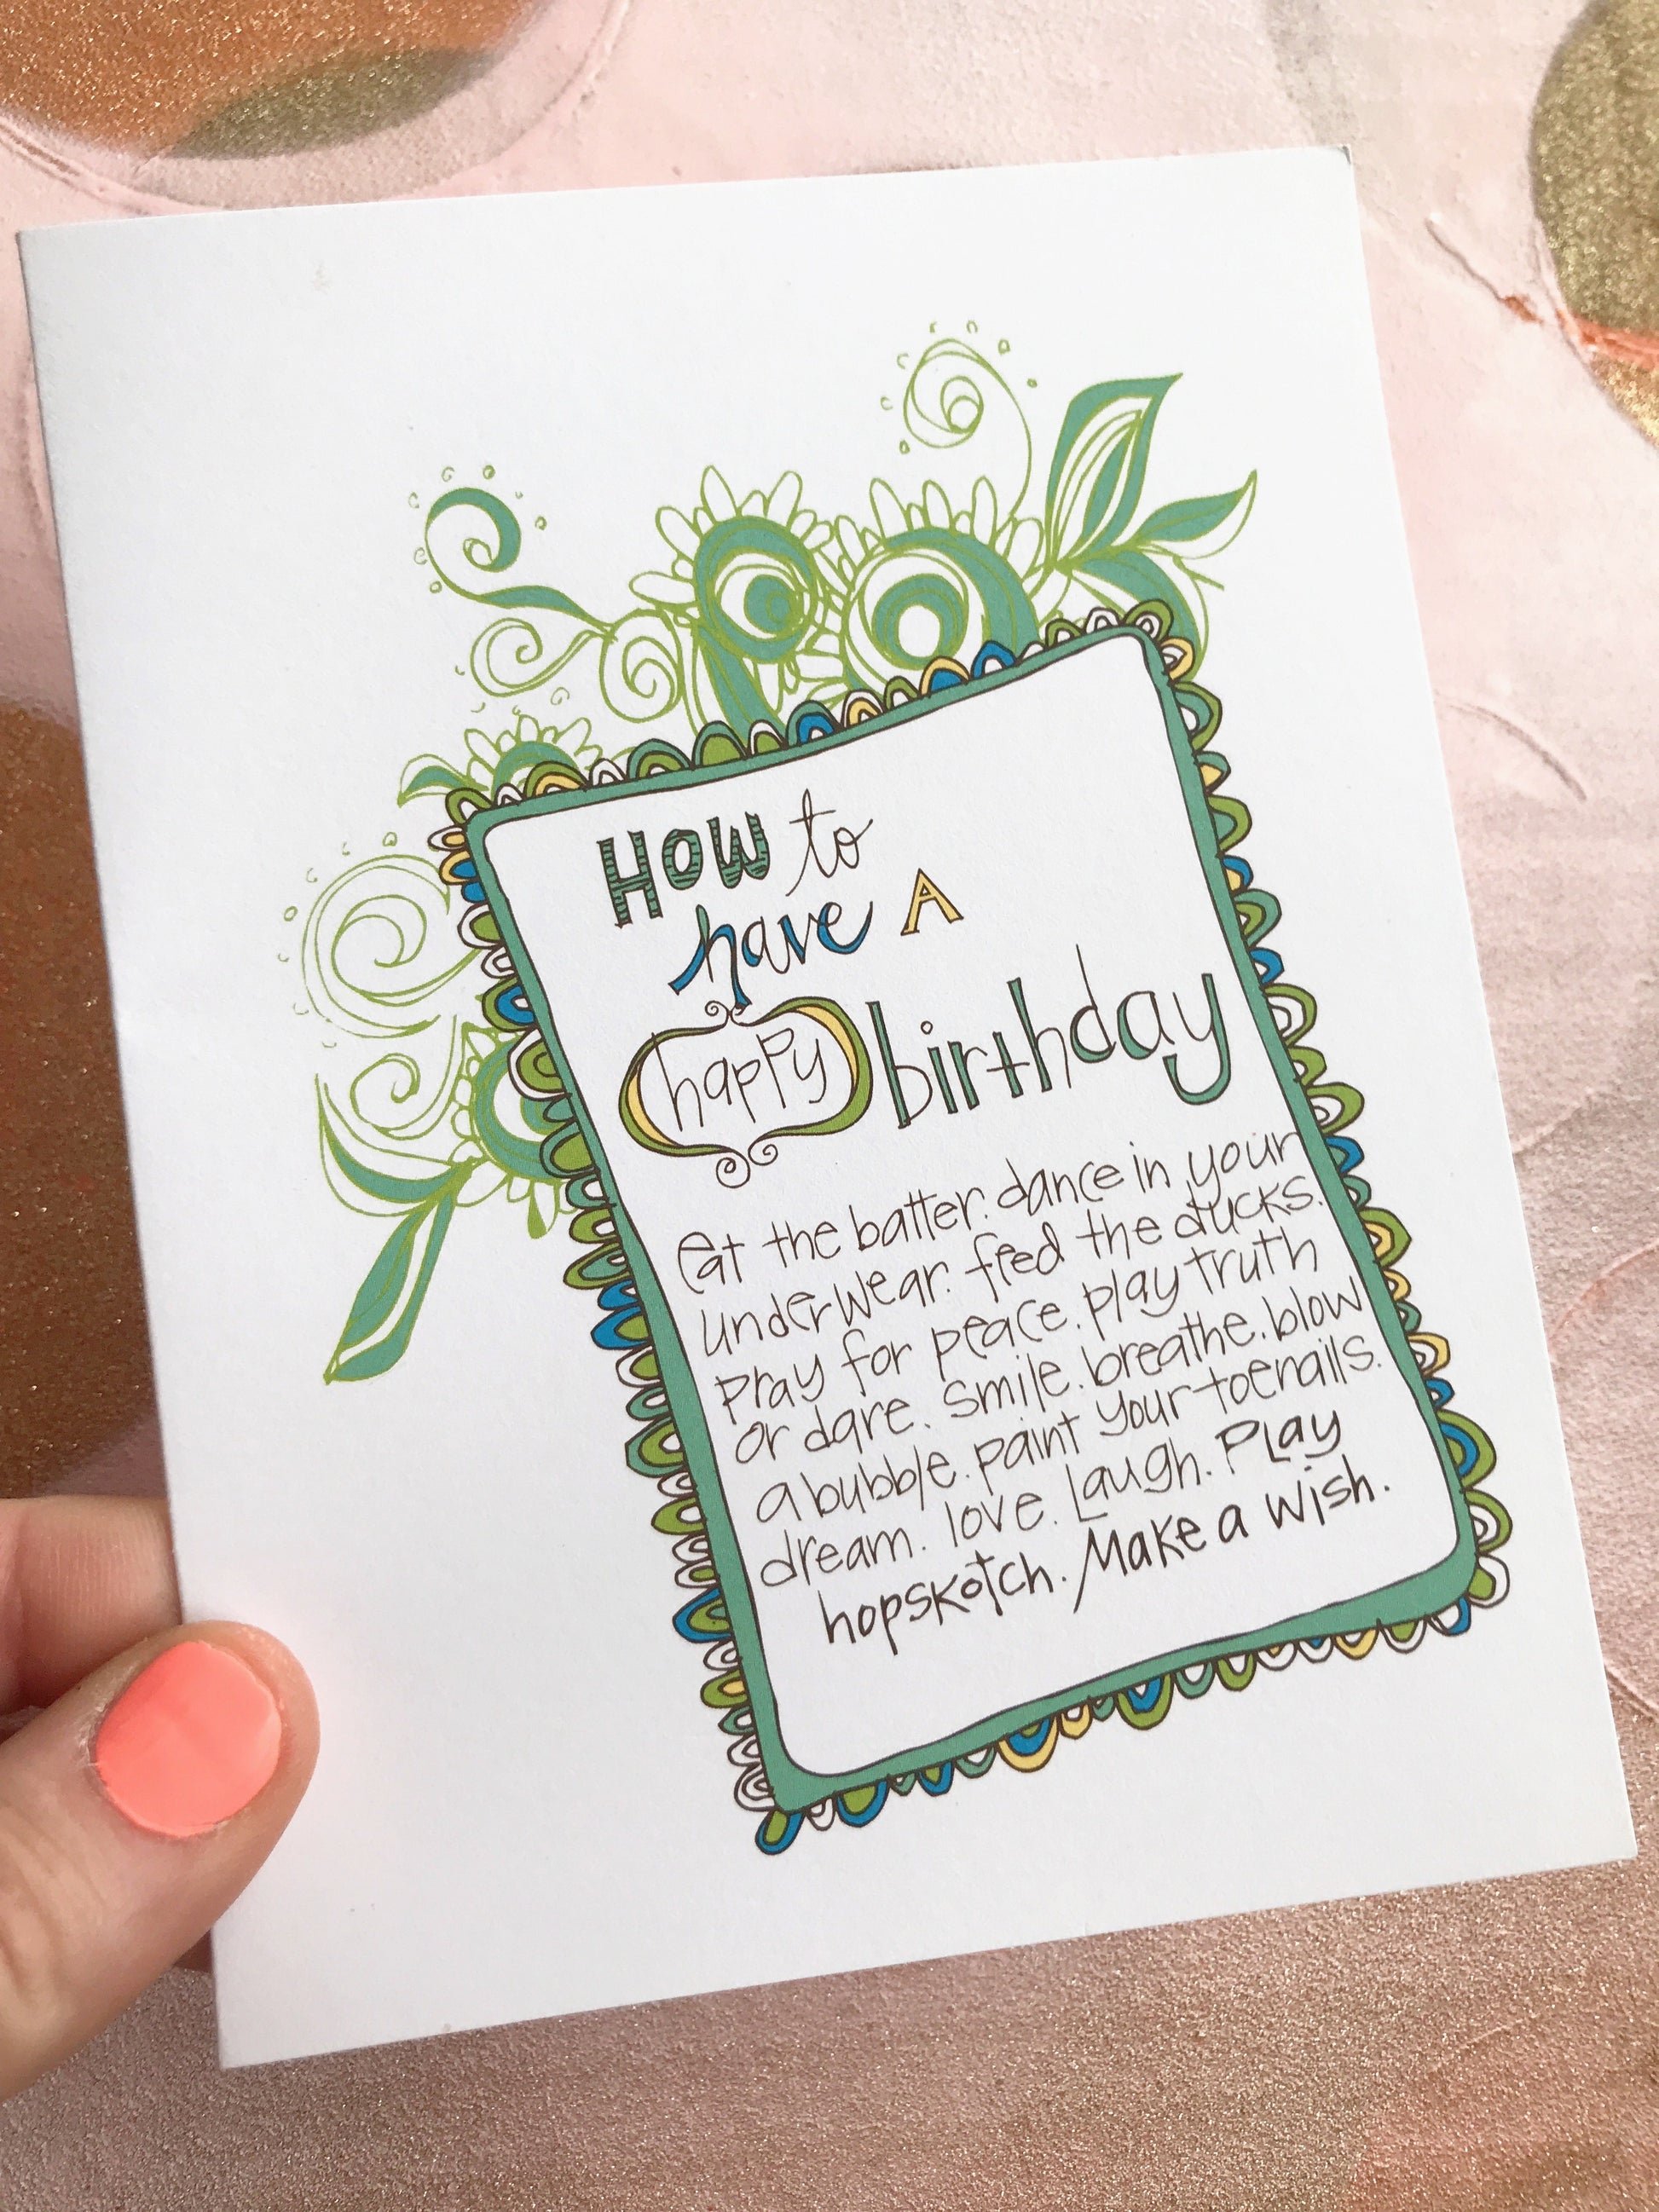 How to
have A
happy birthday
Eat the batter. dance in your
underwear. feed the ducks.
pray for peace. play truth
or dare. smile. breathe. blow
a bubble. paint your toenails.
dream. love. Laugh. Play
hopskotch. Make a wish.